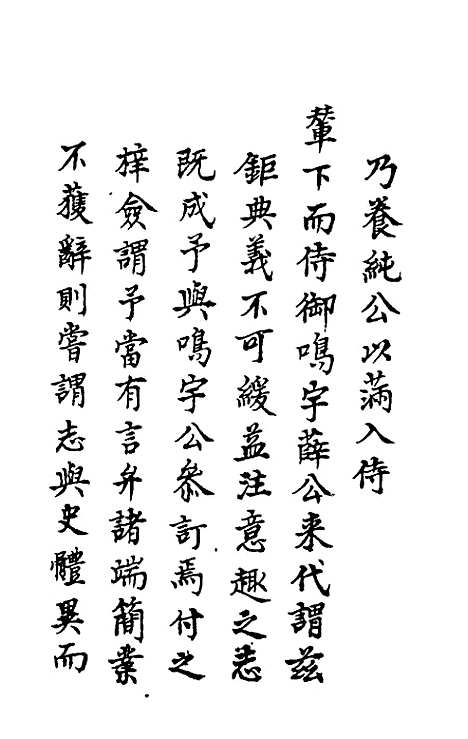 乃養純公以滿入侍
輦下而侍御鳴宇薛公来代謂茲
鉅典義不可緩益注意趣之悉
既成予與鳴宇公叅訂焉付之
梓僉謂予當有言弁諸端簡業
不獲辭則嘗謂志與史體異而